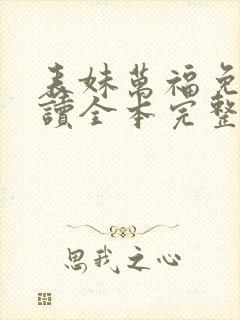 表妹萬福免
讀全本完整
思我之心